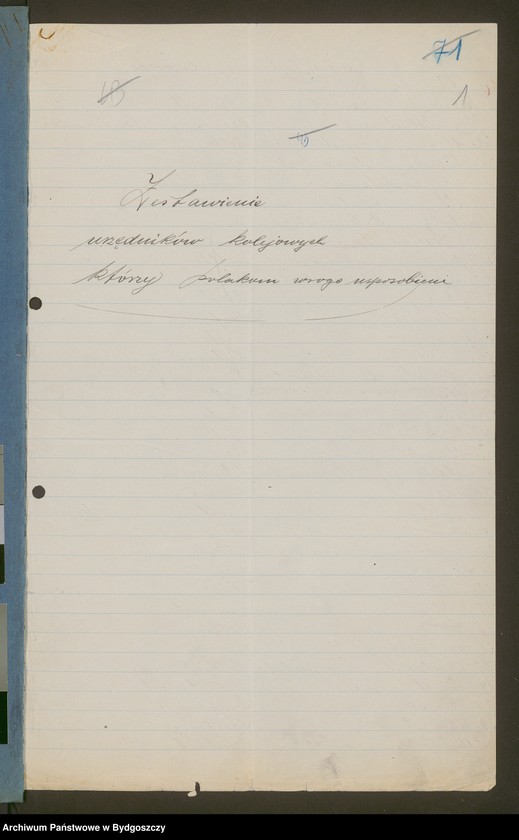 71
1
Zestawienie
urzędników kolejowych
którzy polakom wrogo usposobieni
Archiwum Państwowe w Bydgoszczy